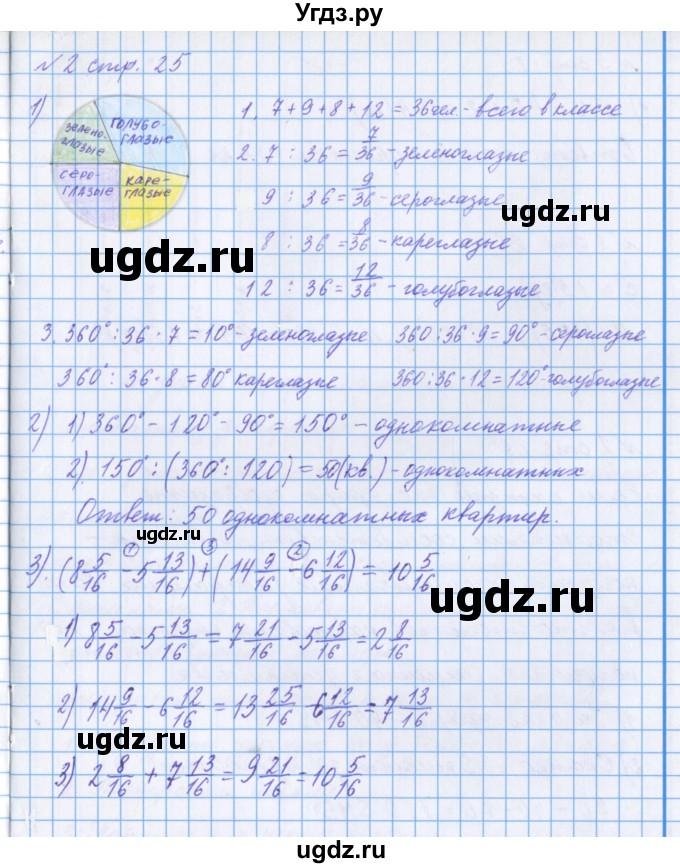 Угдз.ру
№2 стр. 25
1)
ЗЕЛЕНО-
ГЛАЗЫЕ
ГОЛУБО-
ГЛАЗЫЕ
СЕРО-
ГЛАЗЫЕ
КАРЕ-
ГЛАЗЫЕ
1. 7+9+8+12 = 36чел. - всего в классе
2. 7 : 36 = 7/36 - зеленоглазые
9 : 36 = 9/36 - сероглазые
8 : 36 = 8/36 - кареглазые
12 : 36 = 12/36 - голубоглазые
ugdz.ru
ugdz.ru
3. 360° : 36 · 7 = 10° - зеленоглазые 360 : 36 · 9 = 90° - сероглазые
360° : 36 · 8 = 80° кареглазые 360 : 36 · 12 = 120° - голубоглазые
2) 1) 360° - 120° - 90° = 150° - однокомнатные
2) 150° : (360° : 120) = 50(кв.) - однокомнатных
Ответ: 50 однокомнатных квартир.
ugdz.ru
3). (8 5/16 - 5 13/16) + (14 9/16 - 6 12/16) = 10 5/16
1 3 2
ugdz.ru
1) 8 5/16 - 5 13/16 = 7 21/16 - 5 13/16 = 2 8/16
2) 14 9/16 - 6 12/16 = 13 25/16 - 6 12/16 = 7 13/16
ugdz.ru
3) 2 8/16 + 7 13/16 = 9 21/16 = 10 5/16
ugdz.ru
ugdz.ru